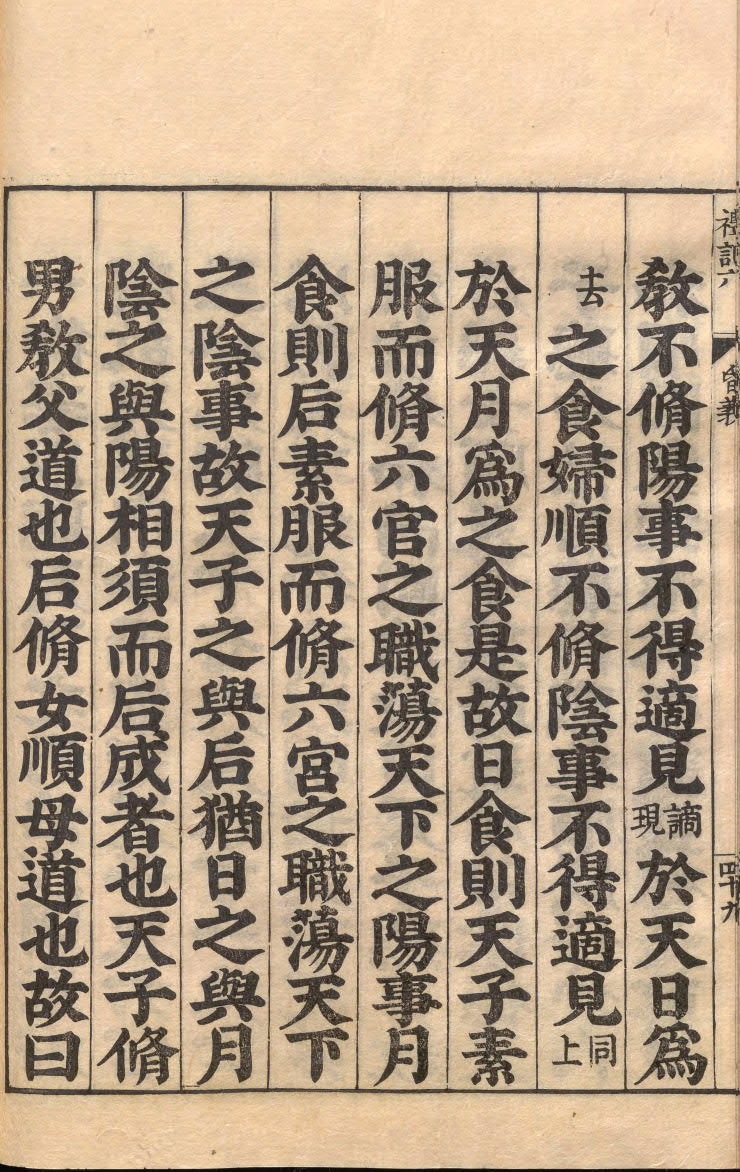 禮記六 昏義 四十九
敎不脩陽事不得適見謫現於天日爲
去之食婦順不脩陰事不得適見同上
於天月爲之食是故日食則天子素
服而脩六官之職蕩天下之陽事月
食則后素服而脩六宮之職蕩天下
之陰事故天子之與后猶日之與月
陰之與陽相須而后成者也天子脩
男敎父道也后脩女順母道也故曰